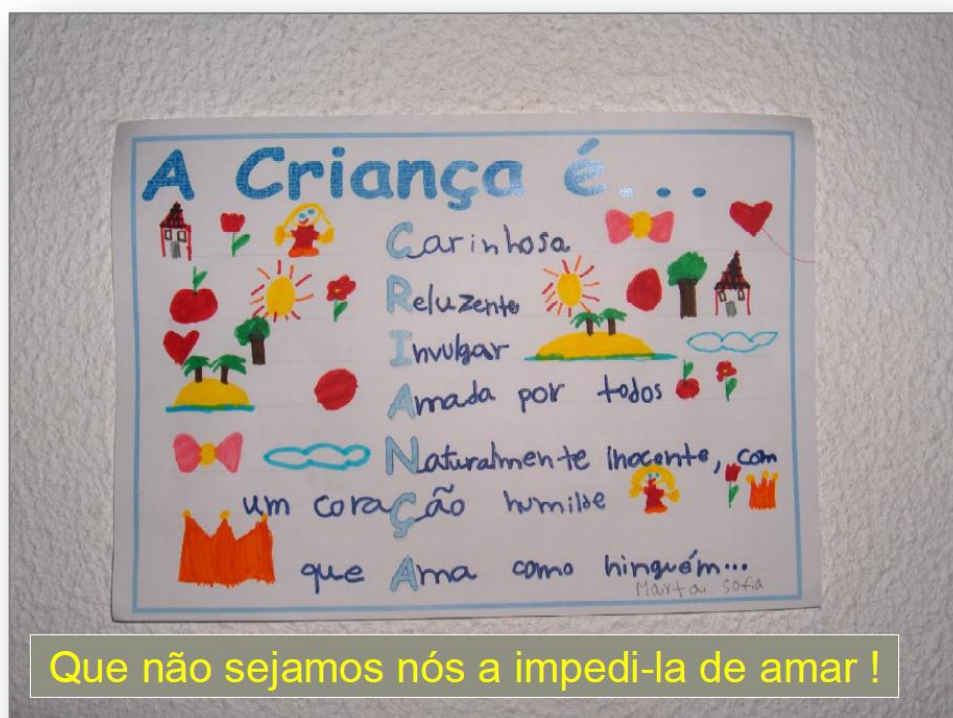 A Criança é...
Carinhosa
Reluzente
Invulgar
Amada por todos
Naturalmente inocente, com
um coração humilde
que Ama como ninguém...
Marta Sofia
Que não sejamos nós a impedi-la de amar !